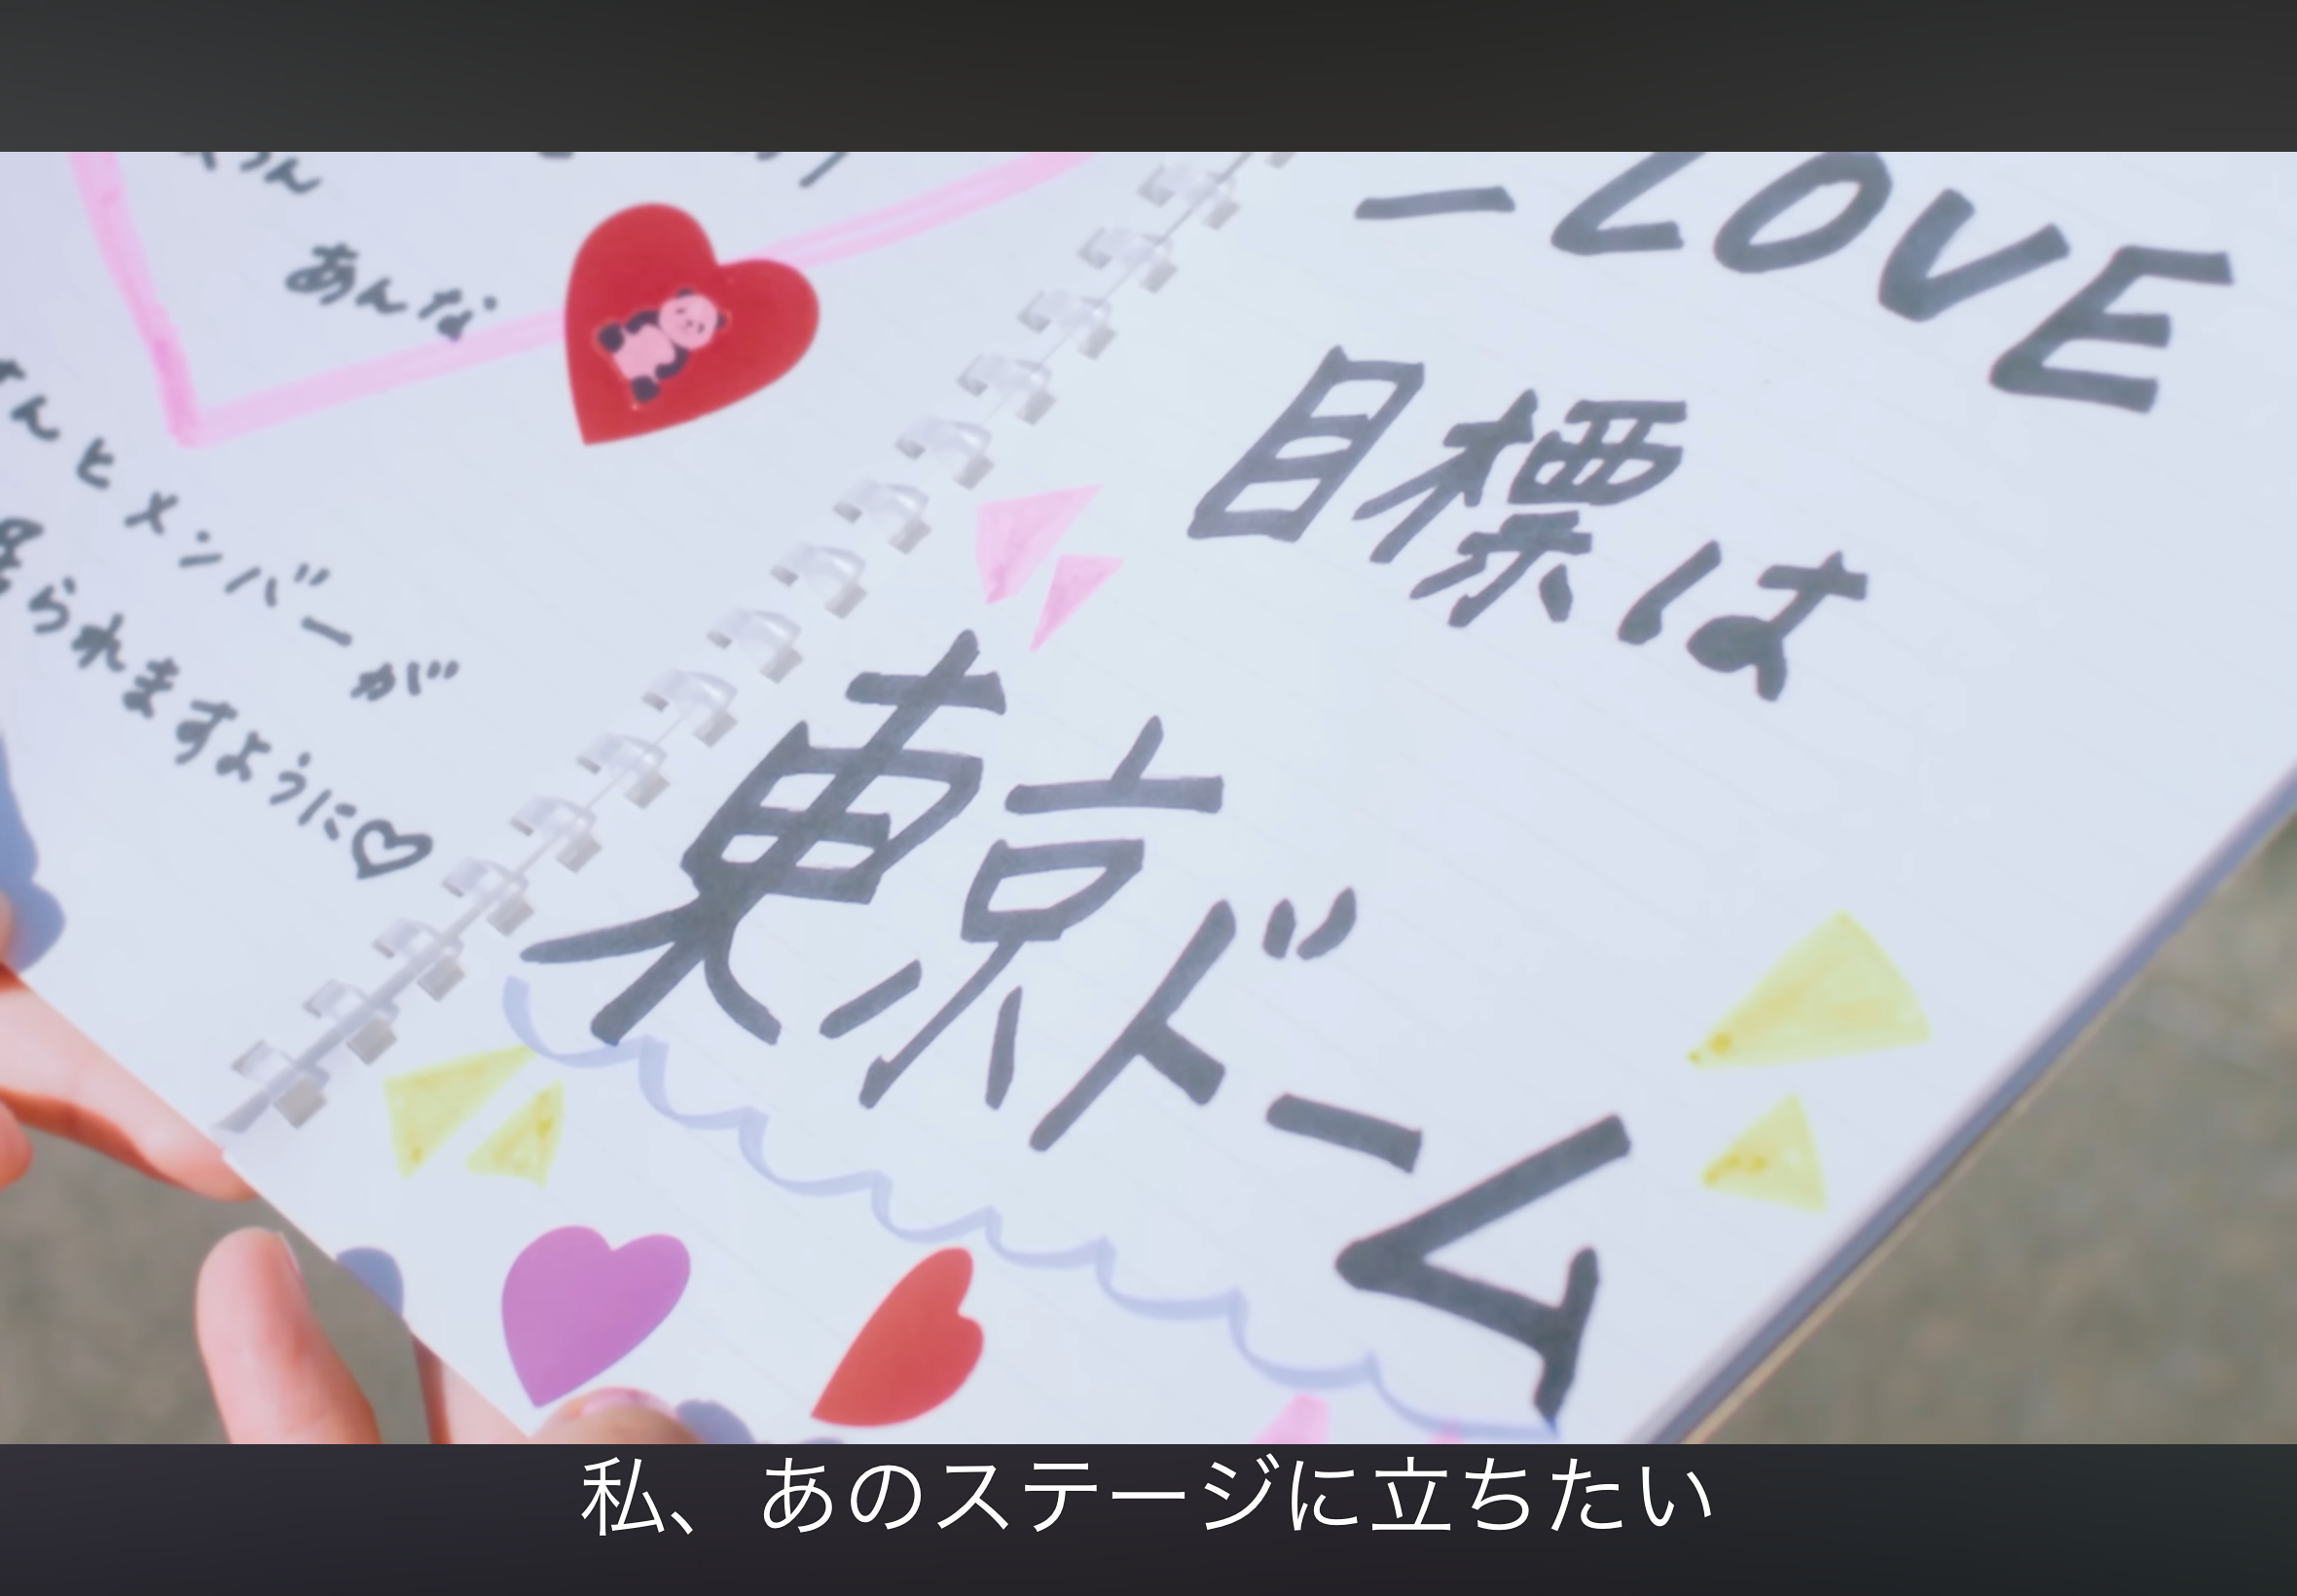 あんな
んとメンバーが
られますように♡
-LOVE
目標は
東京ドーム
私、あのステージに立ちたい